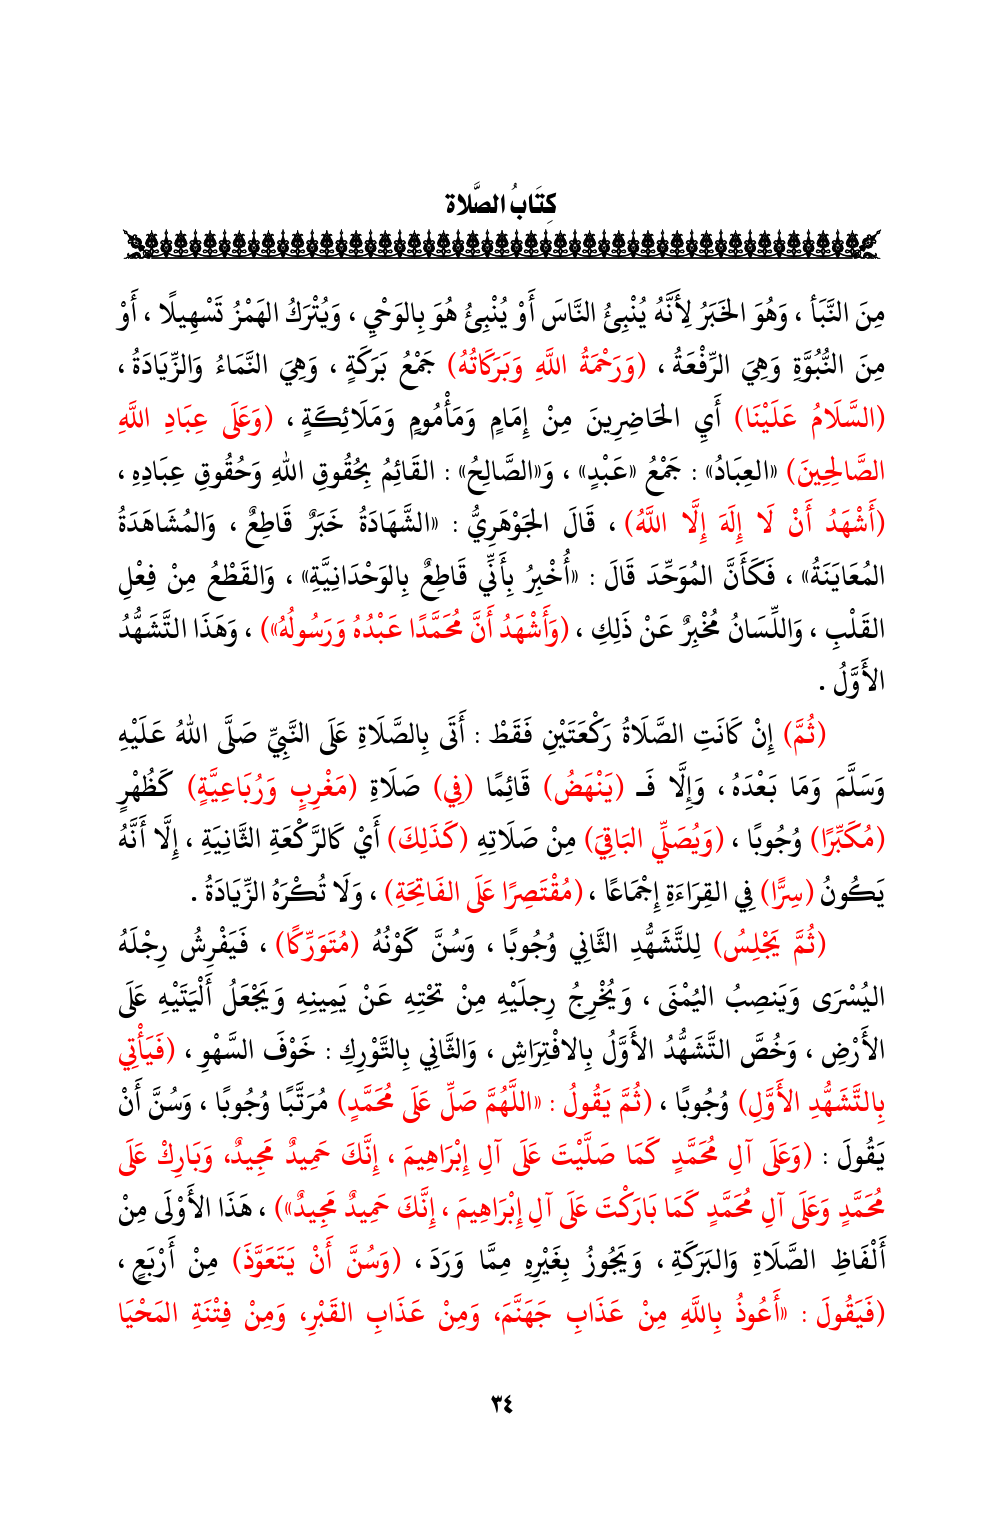 كِتَابُ الصَّلاة
مِنَ النَّبَأ ، وَهُوَ الخَبَرُ لِأَنَّهُ يُنْبِئُ النَّاسَ أَوْ يُنْبِئُ هُوَ بِالوَحْيِ ، وَيُتْرَكُ الهَمْزُ تَسْهِيلًا ، أَوْ
مِنَ النُّبُوَّةِ وَهِيَ الرِّفْعَةُ ، (وَرَحْمَةُ اللَّهِ وَبَرَكَاتُهُ) جَمْعُ بَرَكَةٍ ، وَهِيَ النَّمَاءُ وَالزِّيَادَةُ ،
(السَّلَامُ عَلَيْنَا) أَيِ الحَاضِرِينَ مِنْ إِمَامٍ وَمَأْمُومٍ وَمَلَائِكَةٍ ، (وَعَلَى عِبَادِ اللَّهِ
الصَّالِحِينَ) «العِبَادُ» : جَمْعُ «عَبْدٍ» ، وَ«الصَّالِحُ» : القَائِمُ بِحُقُوقِ اللهِ وَحُقُوقِ عِبَادِهِ ،
(أَشْهَدُ أَنْ لَا إِلَهَ إِلَّا اللَّهُ) ، قَالَ الجَوْهَرِيُّ : «الشَّهَادَةُ خَبَرٌ قَاطِعٌ ، وَالمُشَاهَدَةُ
المُعَايَنَةُ» ، فَكَأَنَّ المُوَحِّدَ قَالَ : «أُخْبِرُ بِأَنِّي قَاطِعٌ بِالوَحْدَانِيَّةِ» ، وَالقَطْعُ مِنْ فِعْلِ
القَلْبِ ، وَاللِّسَانُ مُخْبِرٌ عَنْ ذَلِكِ ، (وَأَشْهَدُ أَنَّ مُحَمَّدًا عَبْدُهُ وَرَسُولُهُ») ، وَهَذَا التَّشَهُّدُ
الأَوَّلُ .
(ثُمَّ) إِنْ كَانَتِ الصَّلَاةُ رَكْعَتَيْنِ فَقَطْ : أَتَى بِالصَّلَاةِ عَلَى النَّبِيِّ صَلَّى اللهُ عَلَيْهِ
وَسَلَّمَ وَمَا بَعْدَهُ ، وَإِلَّا فَـ (يَنْهَضُ) قَائِمًا (فِي) صَلَاةِ (مَغْرِبٍ وَرُبَاعِيَّةٍ) كَظُهْرٍ
(مُكَبِّرًا) وُجُوبًا ، (وَيُصَلِّي البَاقِيَ) مِنْ صَلَاتِهِ (كَذَلِكَ) أَيْ كَالرَّكْعَةِ الثَّانِيَةِ ، إِلَّا أَنَّهُ
يَكُونُ (سِرًّا) فِي القِرَاءَةِ إِجْمَاعًا ، (مُقْتَصِرًا عَلَى الفَاتِحَةِ) ، وَلَا تُكْرَهُ الزِّيَادَةُ .
(ثُمَّ يَجْلِسُ) لِلتَّشَهُّدِ الثَّانِي وُجُوبًا ، وَسُنَّ كَوْنُهُ (مُتَوَرِّكًا) ، فَيَفْرِشُ رِجْلَهُ
اليُسْرَى وَيَنصِبُ اليُمْنَى ، وَيُخْرِجُ رِجلَيْهِ مِنْ تَحْتِهِ عَنْ يَمِينِهِ وَيَجْعَلُ أَلْيَتَيْهِ عَلَى
الأَرْضِ ، وَخُصَّ التَّشَهُّدُ الأَوَّلُ بِالافْتِرَاشِ ، وَالثَّانِي بِالتَّوْرِكِ : خَوْفَ السَّهْوِ ، (فَيَأْتِي
بِالتَّشَهُّدِ الأَوَّلِ) وُجُوبًا ، (ثُمَّ يَقُولُ : «اللَّهُمَّ صَلِّ عَلَى مُحَمَّدٍ) مُرَتَّبًا وُجُوبًا ، وَسُنَّ أَنْ
يَقُولَ : (وَعَلَى آلِ مُحَمَّدٍ كَمَا صَلَّيْتَ عَلَى آلِ إِبْرَاهِيمَ ، إِنَّكَ حَمِيدٌ مَجِيدٌ، وَبَارِكْ عَلَى
مُحَمَّدٍ وَعَلَى آلِ مُحَمَّدٍ كَمَا بَارَكْتَ عَلَى آلِ إِبْرَاهِيمَ ، إِنَّكَ حَمِيدٌ مَجِيدٌ») ، هَذَا الأَوْلَى مِنْ
أَلْفَاظِ الصَّلَاةِ وَالبَرَكَةِ ، وَيَجُوزُ بِغَيْرِهِ مِمَّا وَرَدَ ، (وَسُنَّ أَنْ يَتَعَوَّذَ) مِنْ أَرْبَعٍ ،
(فَيَقُولَ : «أَعُوذُ بِاللَّهِ مِنْ عَذَابِ جَهَنَّمَ، وَمِنْ عَذَابِ القَبْرِ، وَمِنْ فِتْنَةِ المَحْيَا
٣٤